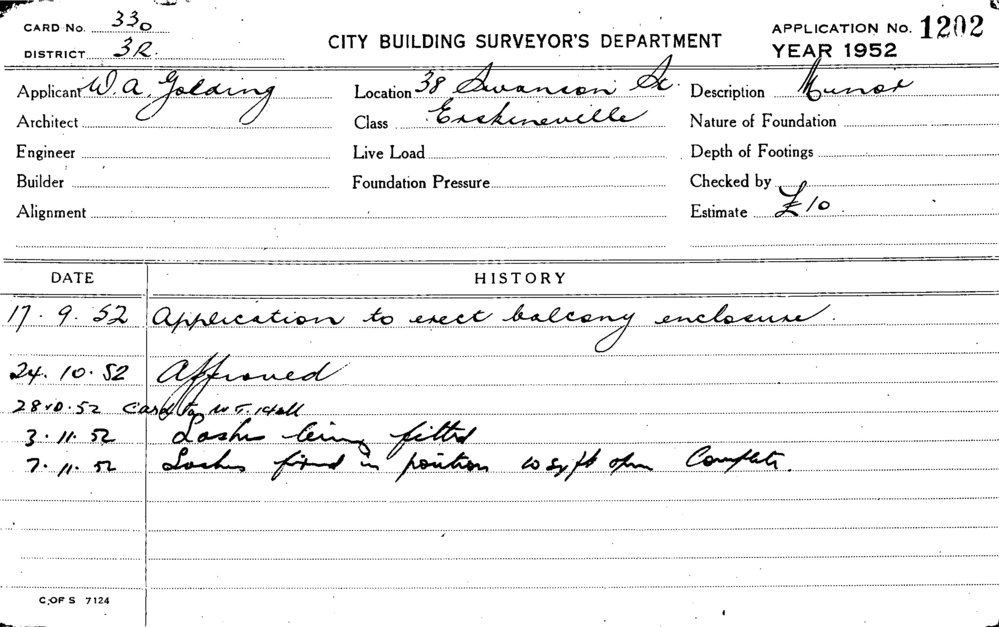 CARD No. 330
DISTRICT 3R.
CITY BUILDING SURVEYOR'S DEPARTMENT
APPLICATION No. 1202
YEAR 1952
Applicant W. A. Golding
Location 38 Swanson St.
Description Minor
Architect
Class Erskineville
Nature of Foundation
Engineer
Live Load
Depth of Footings
Builder
Foundation Pressure
Checked by
Alignment
Estimate £10
DATE HISTORY
17. 9. 52 Application to erect balcony enclosure.
24. 10. 52 Approved
28.10.52 Card to
3. 11. 52 being fitted
7. 11. 52 fixed in position 10 sq/ft open Complete.
C. OF S 7124